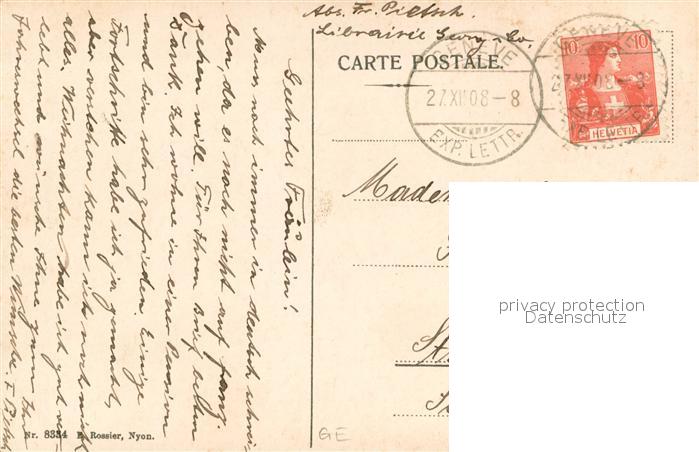 Abs. Fr. Pietsch.
Librairie Georg & Co.
CARTE POSTALE.
GENÈVE
27.XII.08-8
EXP. LETTR.
GENÈVE
27.XII.08-8
EXP. LETTR.
10 10
HELVETIA
Geehrtes Fräulein!
Muss noch immer in deutsch schrei-
ben, da es noch nicht auf franz.
gehen will. Für Ihren Brief besten
Dank. Ich wohne in einer Pension
und bin sehr zufrieden. Einige
Fortschritte habe ich ja gemacht,
aber verstehen kann ich noch nicht
alles. Weihnachten habe ich gut ver-
lebt und wünsche Ihnen zum
Jahreswechsel die besten Wünsche. F. Pietsch
Nr. 8334 E. Rossier, Nyon.
Madem
St
GE
privacy protection
Datenschutz